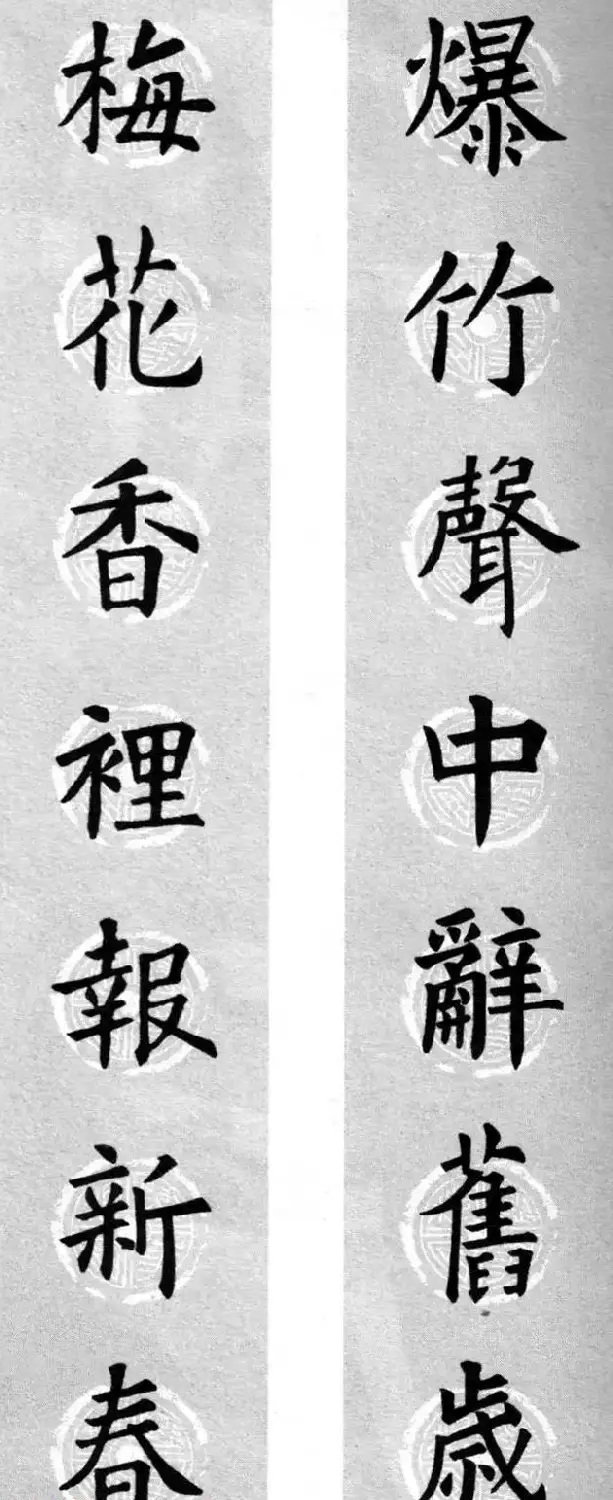 爆竹聲中辭舊歲
梅花香裡報新春